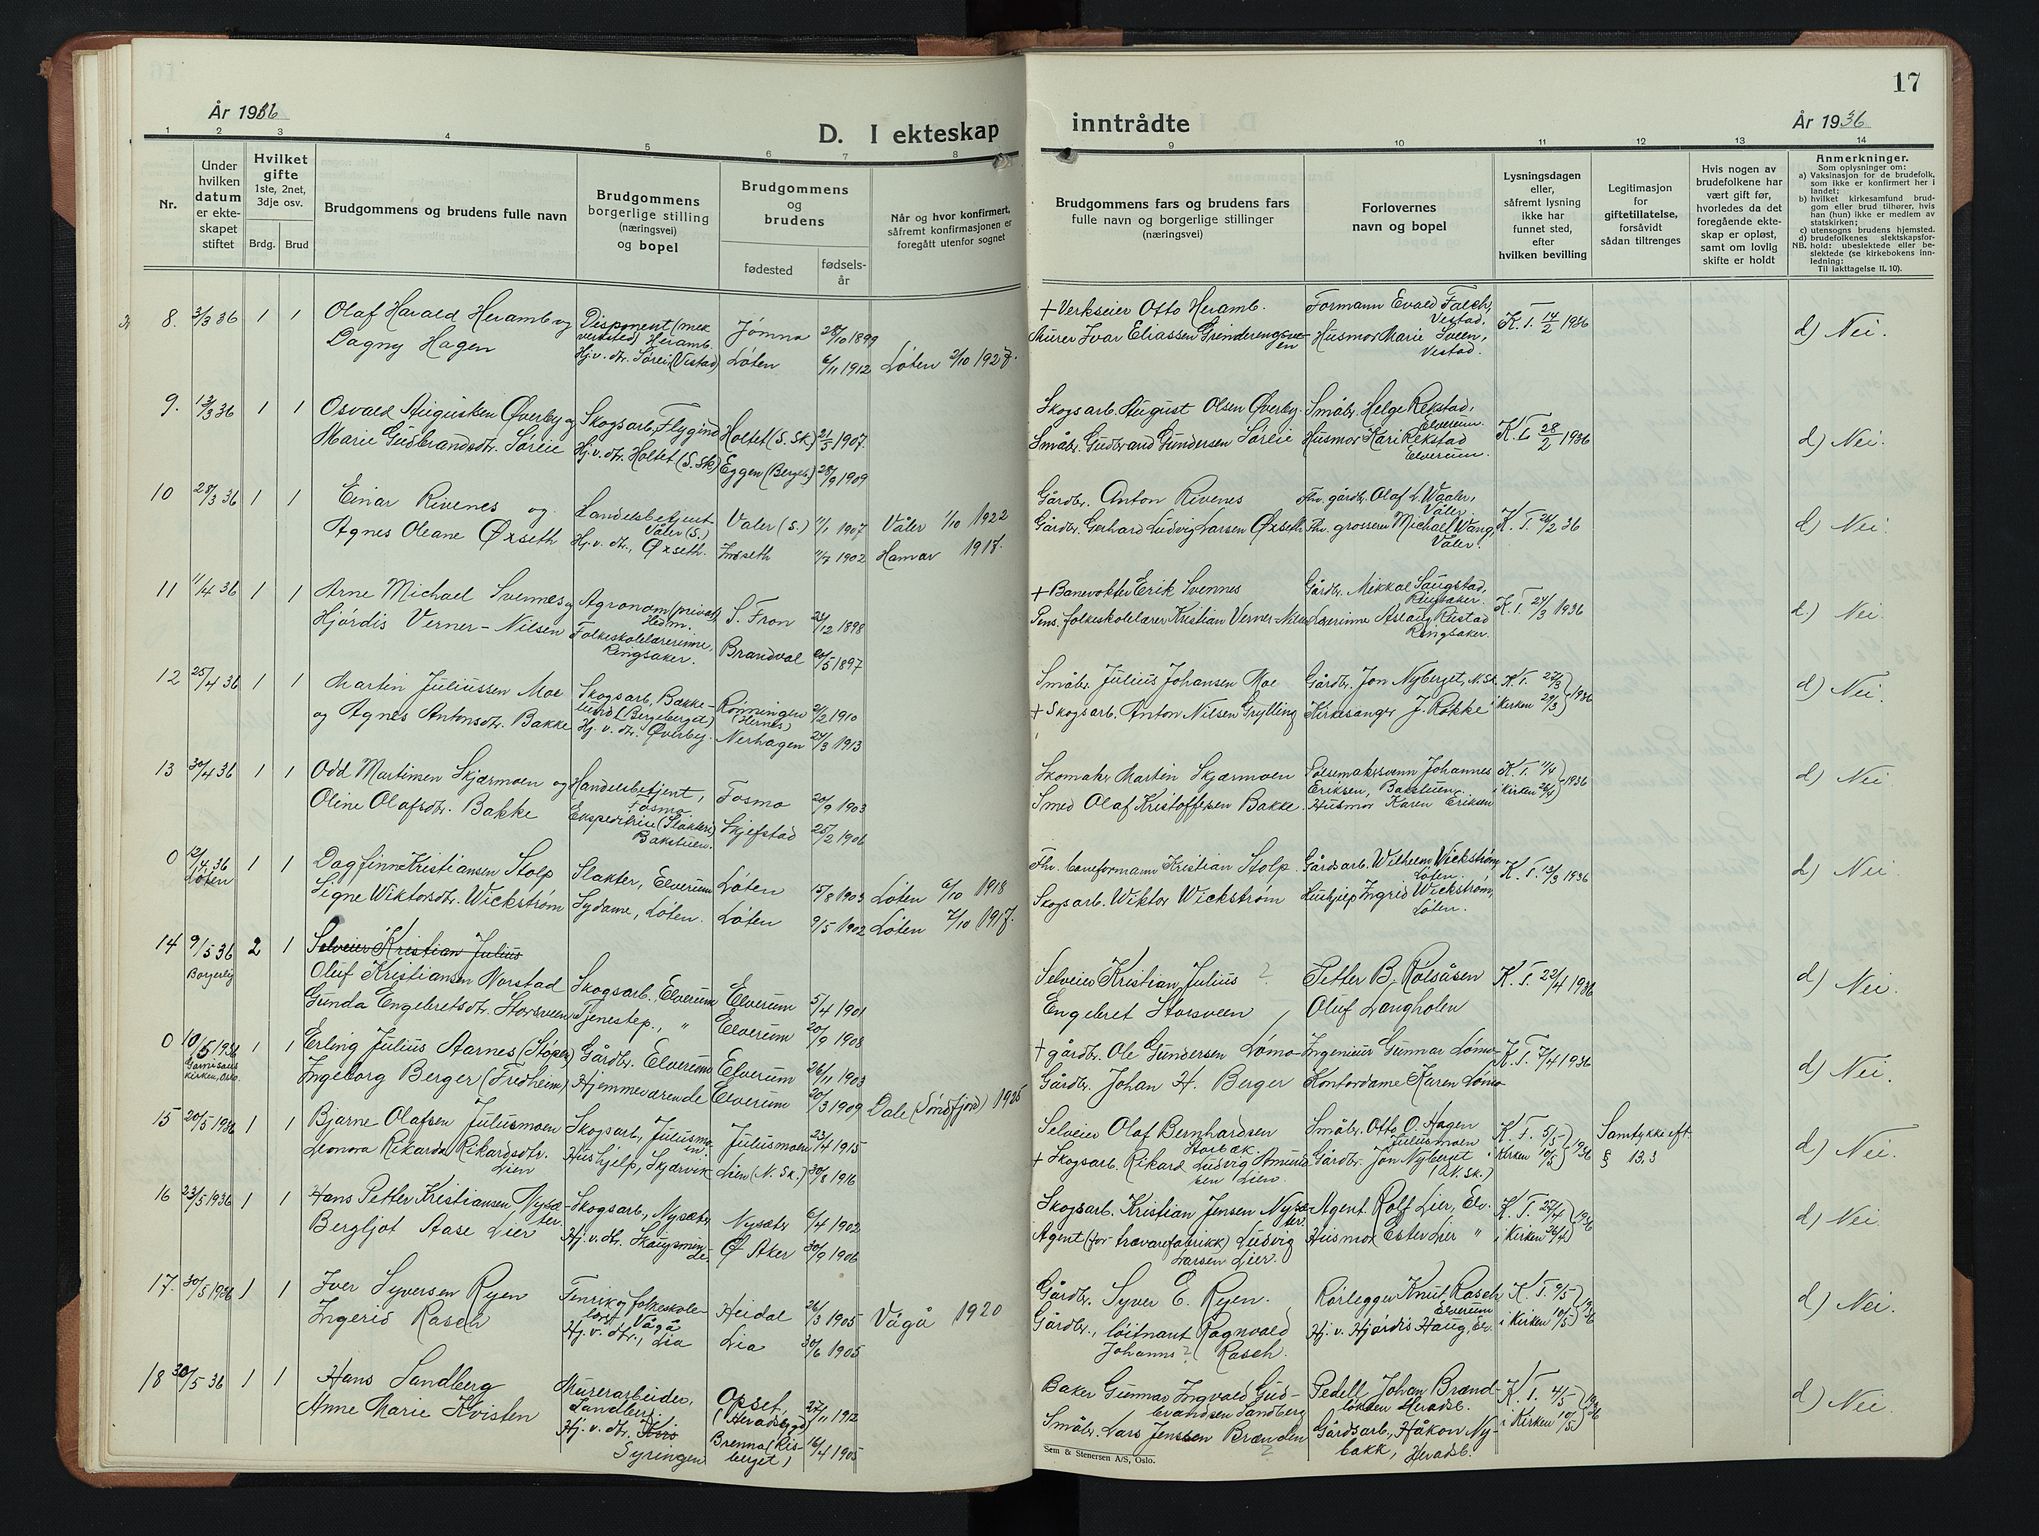 År 1936
D. I ekteskap
1 2 3 4 5 6 7 8
Nr.
Under hvilken datum er ekteskapet stiftet
Hvilket gifte 1ste, 2net, 3dje osv.
Brdg. Brud
Brudgommens og brudens fulle navn
Brudgommens borgerlige stilling (næringsvei) og bopel
Brudgommens og brudens
fødested
fødselsår
Når og hvor konfirmert, såfremt konfirmasjonen er foregått utenfor sognet
8. 2/3 36 1 1 Olaf Harald Heramb og Disponent (mek. Jømna 28/10 1899
verksted) Heramb.
Dagny Hagen Hj.v. dtr. Sørei (Vestad) Løten 6/11 1912 Løten 2/10 1927.
9. 12/3 36 1 1 Osvald Augustsen Øverby og Skogsarb., Flygind Holtet (S. Sk.) 21/5 1907.
Marie Gudbrandsdtr. Søreie Hj.v. dtr. Holtet (S. Sk.) Eggen (Bergeb.) 28/9 1909
10 28/3 36 1 1 Einar Rivenes og Handelsbetjent Våler (S.) 11/1 1907 Våler 1/10 1922
Våler (S.)
Agnes Oleane Øxseth Hj. v. dtr., Øxseth. Indseth 11/7 1902 Hamar 1917.
11 11/4 36 1 1 Arne Michael Svennes og Agronom (privat) S. Fron 24/12 1898
Hedm.
Hjørdis Verner-Nilsen Folkeskolelærerinne, Brandval 20/5 1897
Ringsaker.
12 25/4 36 1 1 Martin Juliussen Moe Skogsarb., Bakke- Rønningen 2/2 1910
lund (Bergeberget) (Hernes)
og Agnes Antonsdtr. Bakke Hj. v. dtr. Øverby. Nerhagen 24/3 1913
13 30/4 36 1 1 Odd Martinsen Skjærmoen og Handelsbetjent, Fosmo 20/9 1903
Fosmo
Oline Olafsdtr. Bakke Ekspeditrise (Slakteri) Skjefstad 25/2 1906
Bakstuen.
0 12/4 36 Løten 1 1 Dagfinn Kristiansen Stolp Slakter, Elverum Løten 15/8 1903 Løten 6/10 1918
Signe Wiktorsdtr. Wickstrøm Sydame, Løten. Løten 9/5 1902 Løten 7/10 1917.
14 9/5 36 Borgerlig 2 1 Selveier Kristian Julius
Oluf Kristiansen Norstad Skogsarb., Elverum Elverum 5/4 1901
Gunda Engebretsdtr. Storsveen Tjenestep., " Elverum 20/9 1908
0 10/5 1936 Garnisonskirken, Oslo. 1 1 Erling Julius Aarnes (Støpen) Gårdbr. Elverum Elverum 26/11 1903
Ingeborg Berger (Fredheim) Hjemmeværende Elverum 20/3 1909 Dale (Sundfjord) 1925
15 20/5 1936 1 1 Bjarne Olafsen Julusmoen Skogsarb., Julusmo- Julusmoen 23/4 1915
en.
Leonora Rikarda Rikardsdtr. Hushjelp, Skjærvik Lien (N. Sk.) 30/8 1916
Lien
16 23/5 1936 1 1 Hans Petter Kristiansen Nysæ- Skogsarb., Nysæter Nysæter 6/4 1902
ter.
Bergljot Aase Lier Hj. v. dtr. Skaugsminde. Ø. Aker 30/9 1906
17. 30/5 1936 1 1 Iver Syversen Ryen Fenrik og folkeskole- Heidal 26/3 1905 Vågå 1920
lær. Vågå
Ingerid Rasch Hj. v. dtr., Lia Lia 30/6 1905
18 30/5 36 1 1 Hans Sandberg Murerarbeider, Opset, 27/11 1912
Sandberg (Heradsbygd)
Anne Marie Kvisten Hj. v. dtr. Brenna (Ris- 16/4 1905
Syringen berget)
17
inntrådte
År 1936
9 10 11 12 13 14
Brudgommens fars og brudens fars fulle navn og borgerlige stillinger (næringsvei)
Forlovernes navn og bopel
Lysningsdagen eller, såfremt lysning ikke har funnet sted, efter hvilken bevilling
Legitimasjon for giftetillatelse, forsåvidt sådan tiltrenges
Hvis nogen av brudefolkene har vært gift før, hvorledes da det foregående ekteskap er opløst, samt om lovlig skifte er holdt
Anmerkninger.
Som oplysninger om:
a) Vaksinasjon for de brudefolk, som ikke er konfirmert her i landet;
b) hvilket kirkesamfund brudgom eller brud tilhører, hvis han (hun) ikke er medlem av statskirken;
c) utensogns brudens hjemsted.
d) brudefolkenes slektskapsforhold: ubeslektede eller beslektede (se kirkebokens innledning:
NB.
Til iakttagelse II. 10).
+ Verkseier Otto Heramb. Formann Evald Falch, Vestad, K. T. 14/2 1936 d) Nei.
Murer Ivar Eliassen Grinderengsveen Husmor Marie Sveen, Vestad.
Skogsarb. August Olsen Øverby Småbr. Helge Rekstad, Elverum. K. T. 28/2 1936 d) Nei.
Småbr. Gudbrand Gundersen Søreie Husmor Kari Rekstad Elverum.
Gårdbr. Anton Rivenes Fhv. gårdbr. Olaf L. Waaler, Våler K. T. 26/2 36 d) Nei.
Gårdbr. Gerhard Ludvig Larsen Øxseth Fhv. grosserer Michael Wang, Våler.
+ Banevokter Erik Svennes Gårdbr. Mikkal Saugstad, Ringsaker. K. T. 24/3 1936 d) Nei.
Pens. folkeskolelærer Kristian Verner-Nilsen Lærerinne Aslaug Rustad Ringsaker.
Småbr. Julius Johansen Moe Gårdbr. Jon Nyberget, N. Sk. K. T. 27/3 1936 d) Nei.
+ Skogsarb. Anton Nilsen Grylling Kirkesanger J. Røkke i Kirken 29/3
Skomaker Martin Skjærmoen Pølsemakersvenn Johannes Eriksen, Bakstuen. K. T. 4/4 1936 d) Nei.
Smed Olaf Kristoffersen Bakke. Husmor Karen Eriksen i Kirken 26/4
Fhv. baneformann Kristian Stolp Gårdsarb. Wilhelm Wickstrøm Løten. K. T. 13/3 1936 d) Nei.
Skogsarb. Wiktor Wickstrøm Hushjelp Ingrid Wickstrøm, Løten.
Selveier Kristian Julius ? Petter B. Kølsåsen K. T. 22/4 1936 d) Nei.
Engebret Storsveen Oluf Langholen
+ gårdbr. Ole Gundersen Lømo Ingeniør Gunnar Lømo K. T. 7/4 1936 d) Nei.
Gårdbr. Johan H. Berger Kontordame Karen Lømo
Selveier Olaf Bernhardsen Storbæk. Småbr. Otto O. Hagen Julusmoen K. T. 5/5 1936 Samtykke eft. § 13,3 d) Nei.
+ Skogsarb. Rikard Ludvig Amundsen Lien. Gårdbr. Jon Nyberget (N. Sk.) i Kirken 10/5
Skogsarb. Kristian Jensen Nysæter. Agent Rolf Lier, Elv. K. T. 27/4 1936 d) Nei.
Agent (for trævarefabrikk) Ludvig Larsen Lier. Husmor Ester Lier " i Kirken 26/4
Gårdbr. Syver E. Ryen. Rørlegger Knut Rasch Elverum K. T. 9/5 1936 d) Nei.
Gårdbr., løitnant Ragnvald Johanns? Rasch. Hj. v. Hjørdis Haug, Elv. i Kirken 10/5
Baker Gunnar Ingvald Gudbrandsen Sandberg Pedell Johan Brændlokken Heradsb. K. T. 4/5 1936 d) Nei.
Småbr. Lars Jenssen Brænden ? Gårdsarb., Håkon Nybakk, Heradsb. i Kirken 10/5
Sem & Stenersen A/S, Oslo.